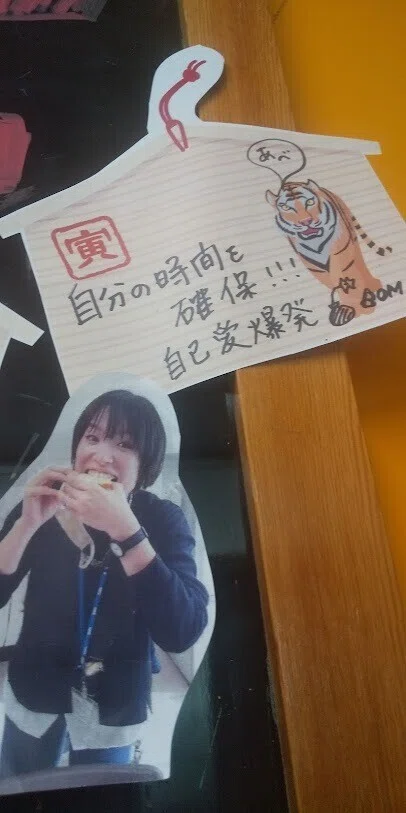 あべ
寅
自分の時間を
確保!!!
自己愛爆発
BOM